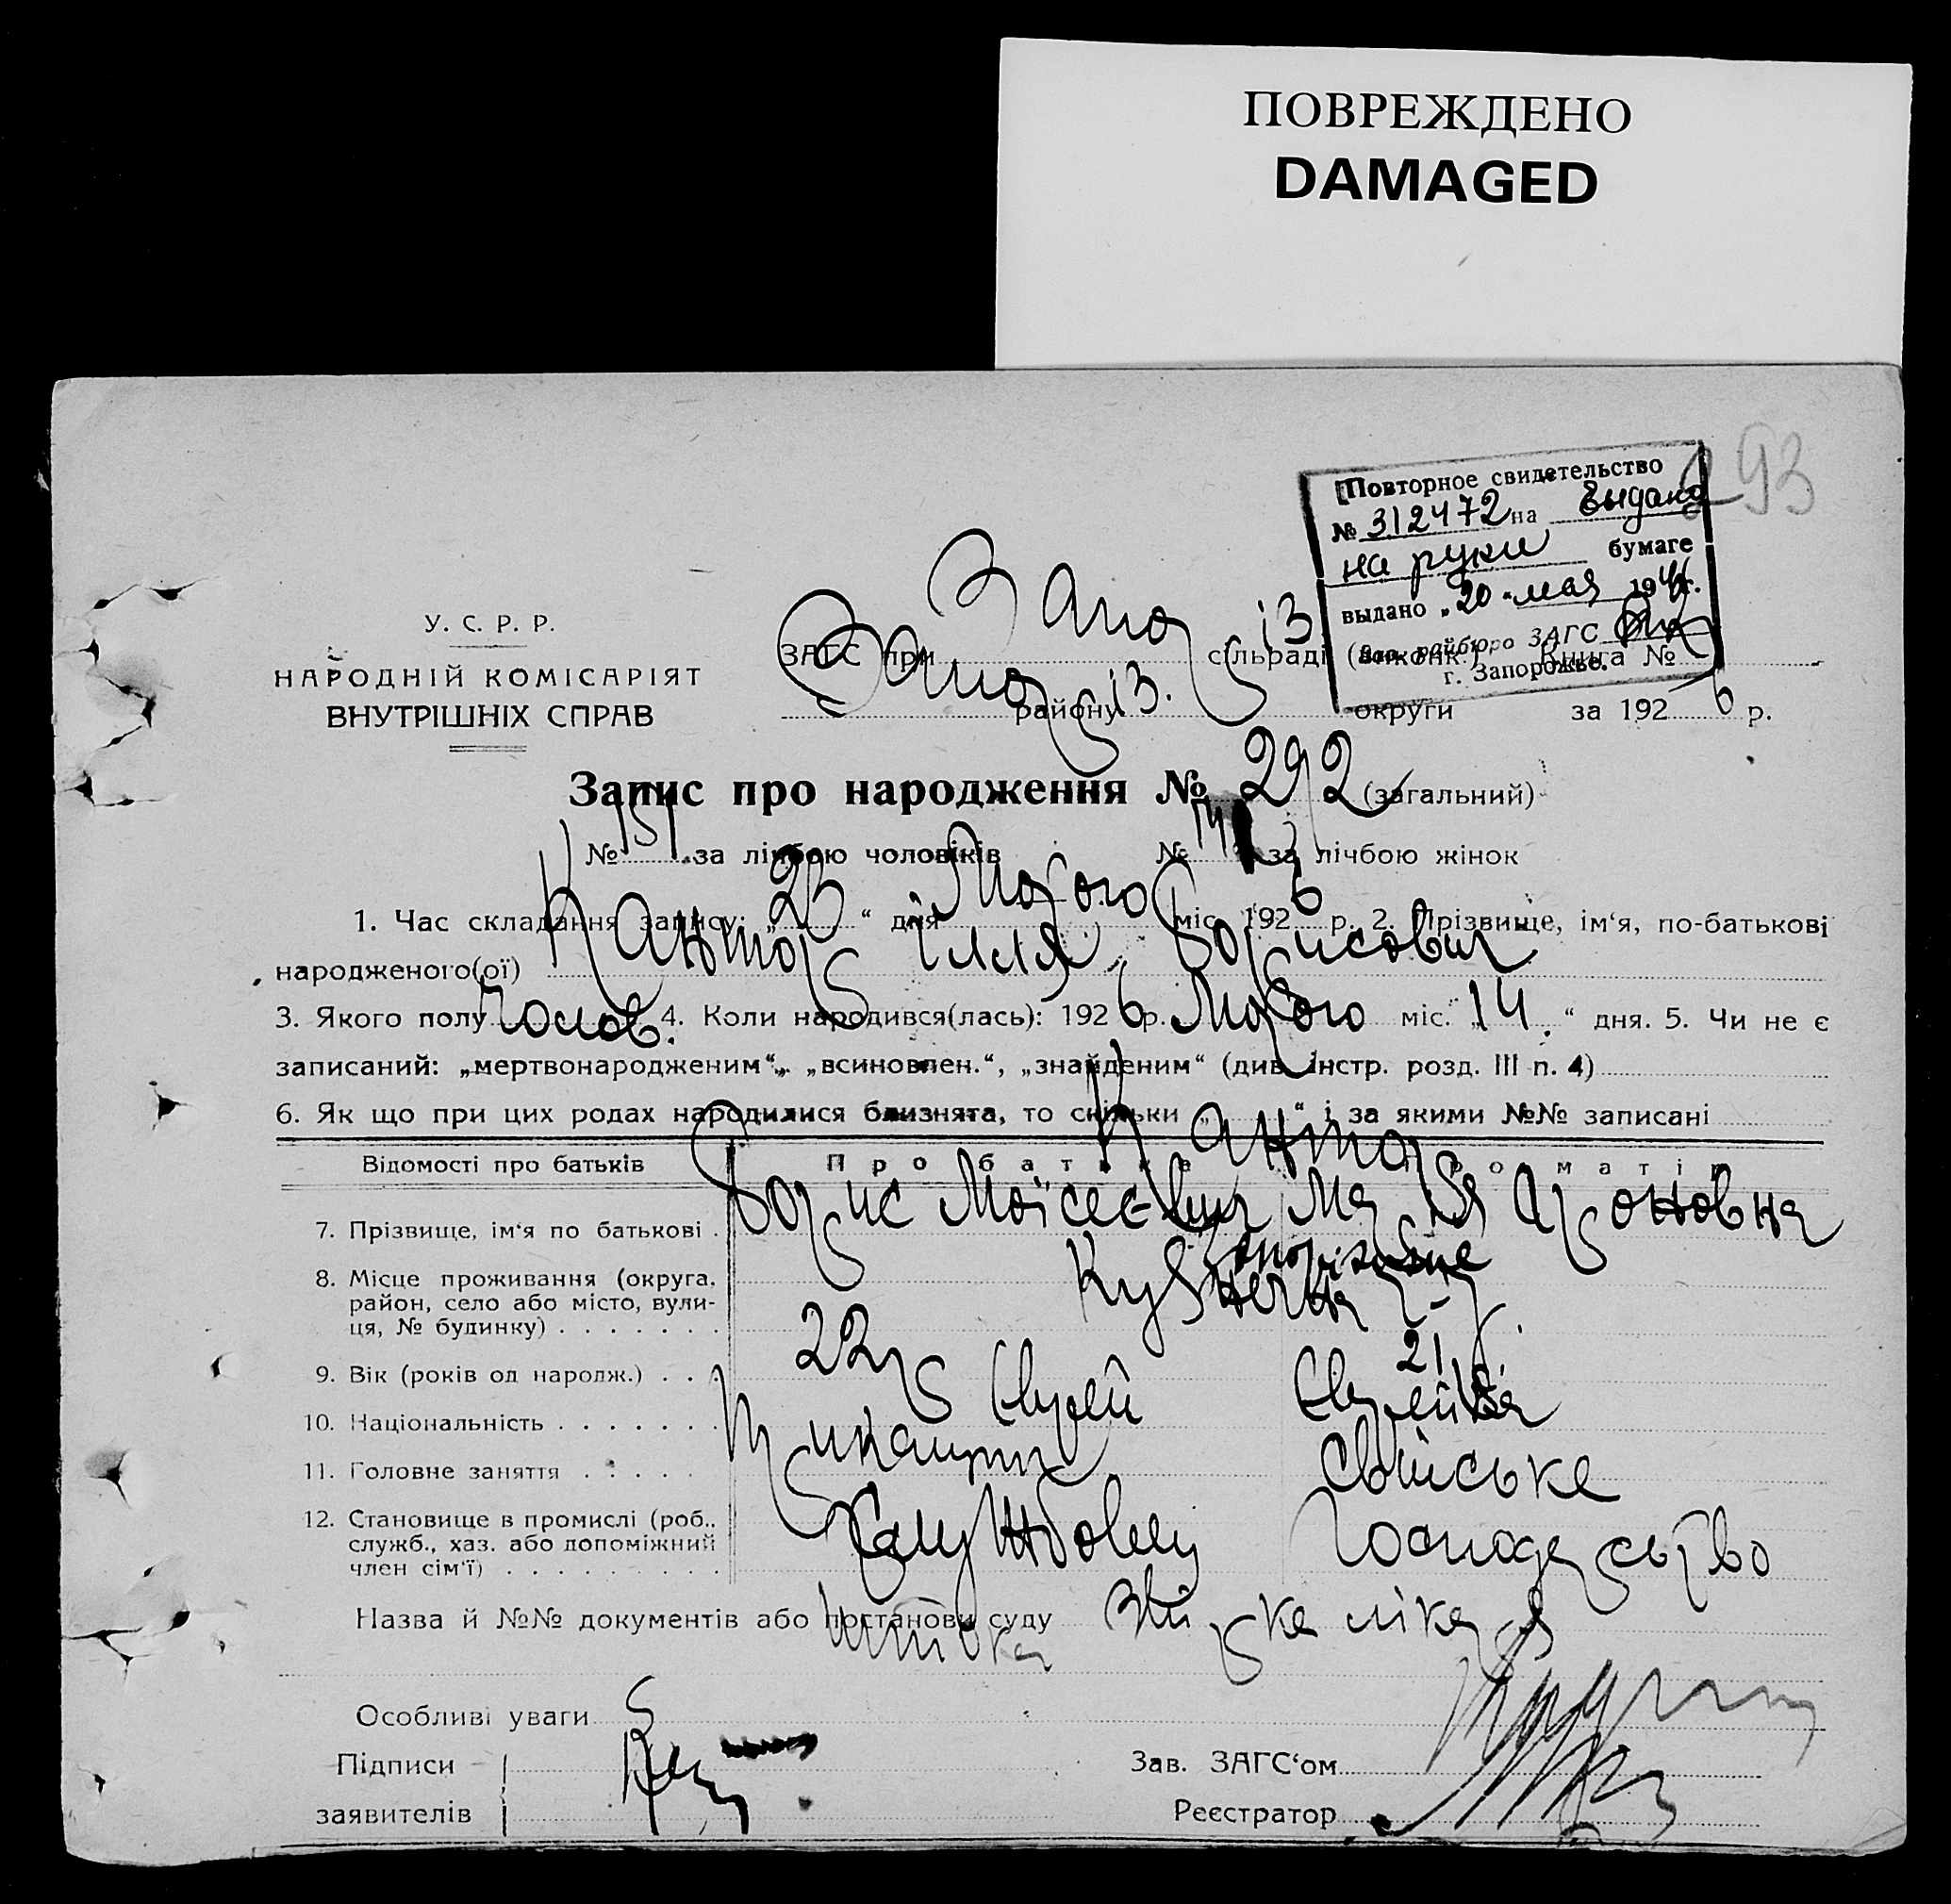 ПОВРЕЖДЕНО
DAMAGED
293
Повторное свидетельство
№ 312472 на выдано
на руки бумаге
выдано „20“ мая 194 г.
Зав. райбюро ЗАГС
г. Запорожье.
У. С. Р. Р.
НАРОДНІЙ КОМІСАРІЯТ
ВНУТРІШНІХ СПРАВ
ЗАГС при Запоріз. сільраді (виконк.) Книга №
Запоріз. району округи за 1926 р.
Запис про народження № 292 (загальний)
№ 151 за лічбою чоловіків № за лічбою жінок
1. Час складання запису: „23“ дня Лютого міс. 1926 р. 2. Прізвище, ім‘я, по-батькові
народженого(ої) Кантор Ілля Борисович
3. Якого полу Чолов. 4. Коли народився(лась): 1926 р. Лютого міс. „14“ дня. 5. Чи не є
записаний: „мертвонародженим“, „всиновлен.“, „знайденим“ (див. інстр. розд. III п. 4)
6. Як що при цих родах народилися близнята, то скільки „ “ і за якими №№ записані
Відомості про батьків Про батька Про матір
Кантор
7. Прізвище, ім‘я по батькові Борис Моісеєвич Марія Ароновна
8. Місце проживання (округа, район, село або місто, вулиця, № будинку) Запоріжжє
Кузнечна
9. Вік (років од народж.) 22 р. 21 р.
10. Національність Єврей Єврейка
11. Головне заняття Прикащик Свійське
12. Становище в промислі (роб., служб., хаз. або допоміжний член сім‘ї) Службовец Господарство
Назва й №№ документів або постанови суду лікаря
Особливі уваги
Підписи
заявителів
Зав. ЗАГС‘ом
Реєстратор